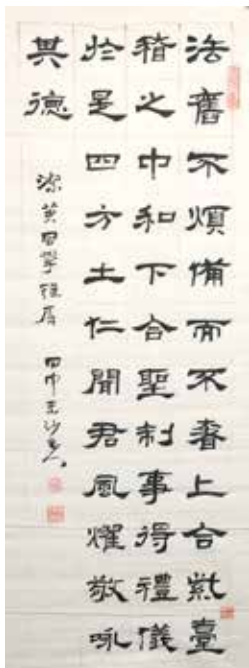 法舊不煩備而不奢上合紫臺
稽之中和下合聖制事得禮儀
扵是四方土仁聞君風燿敬咏
其德